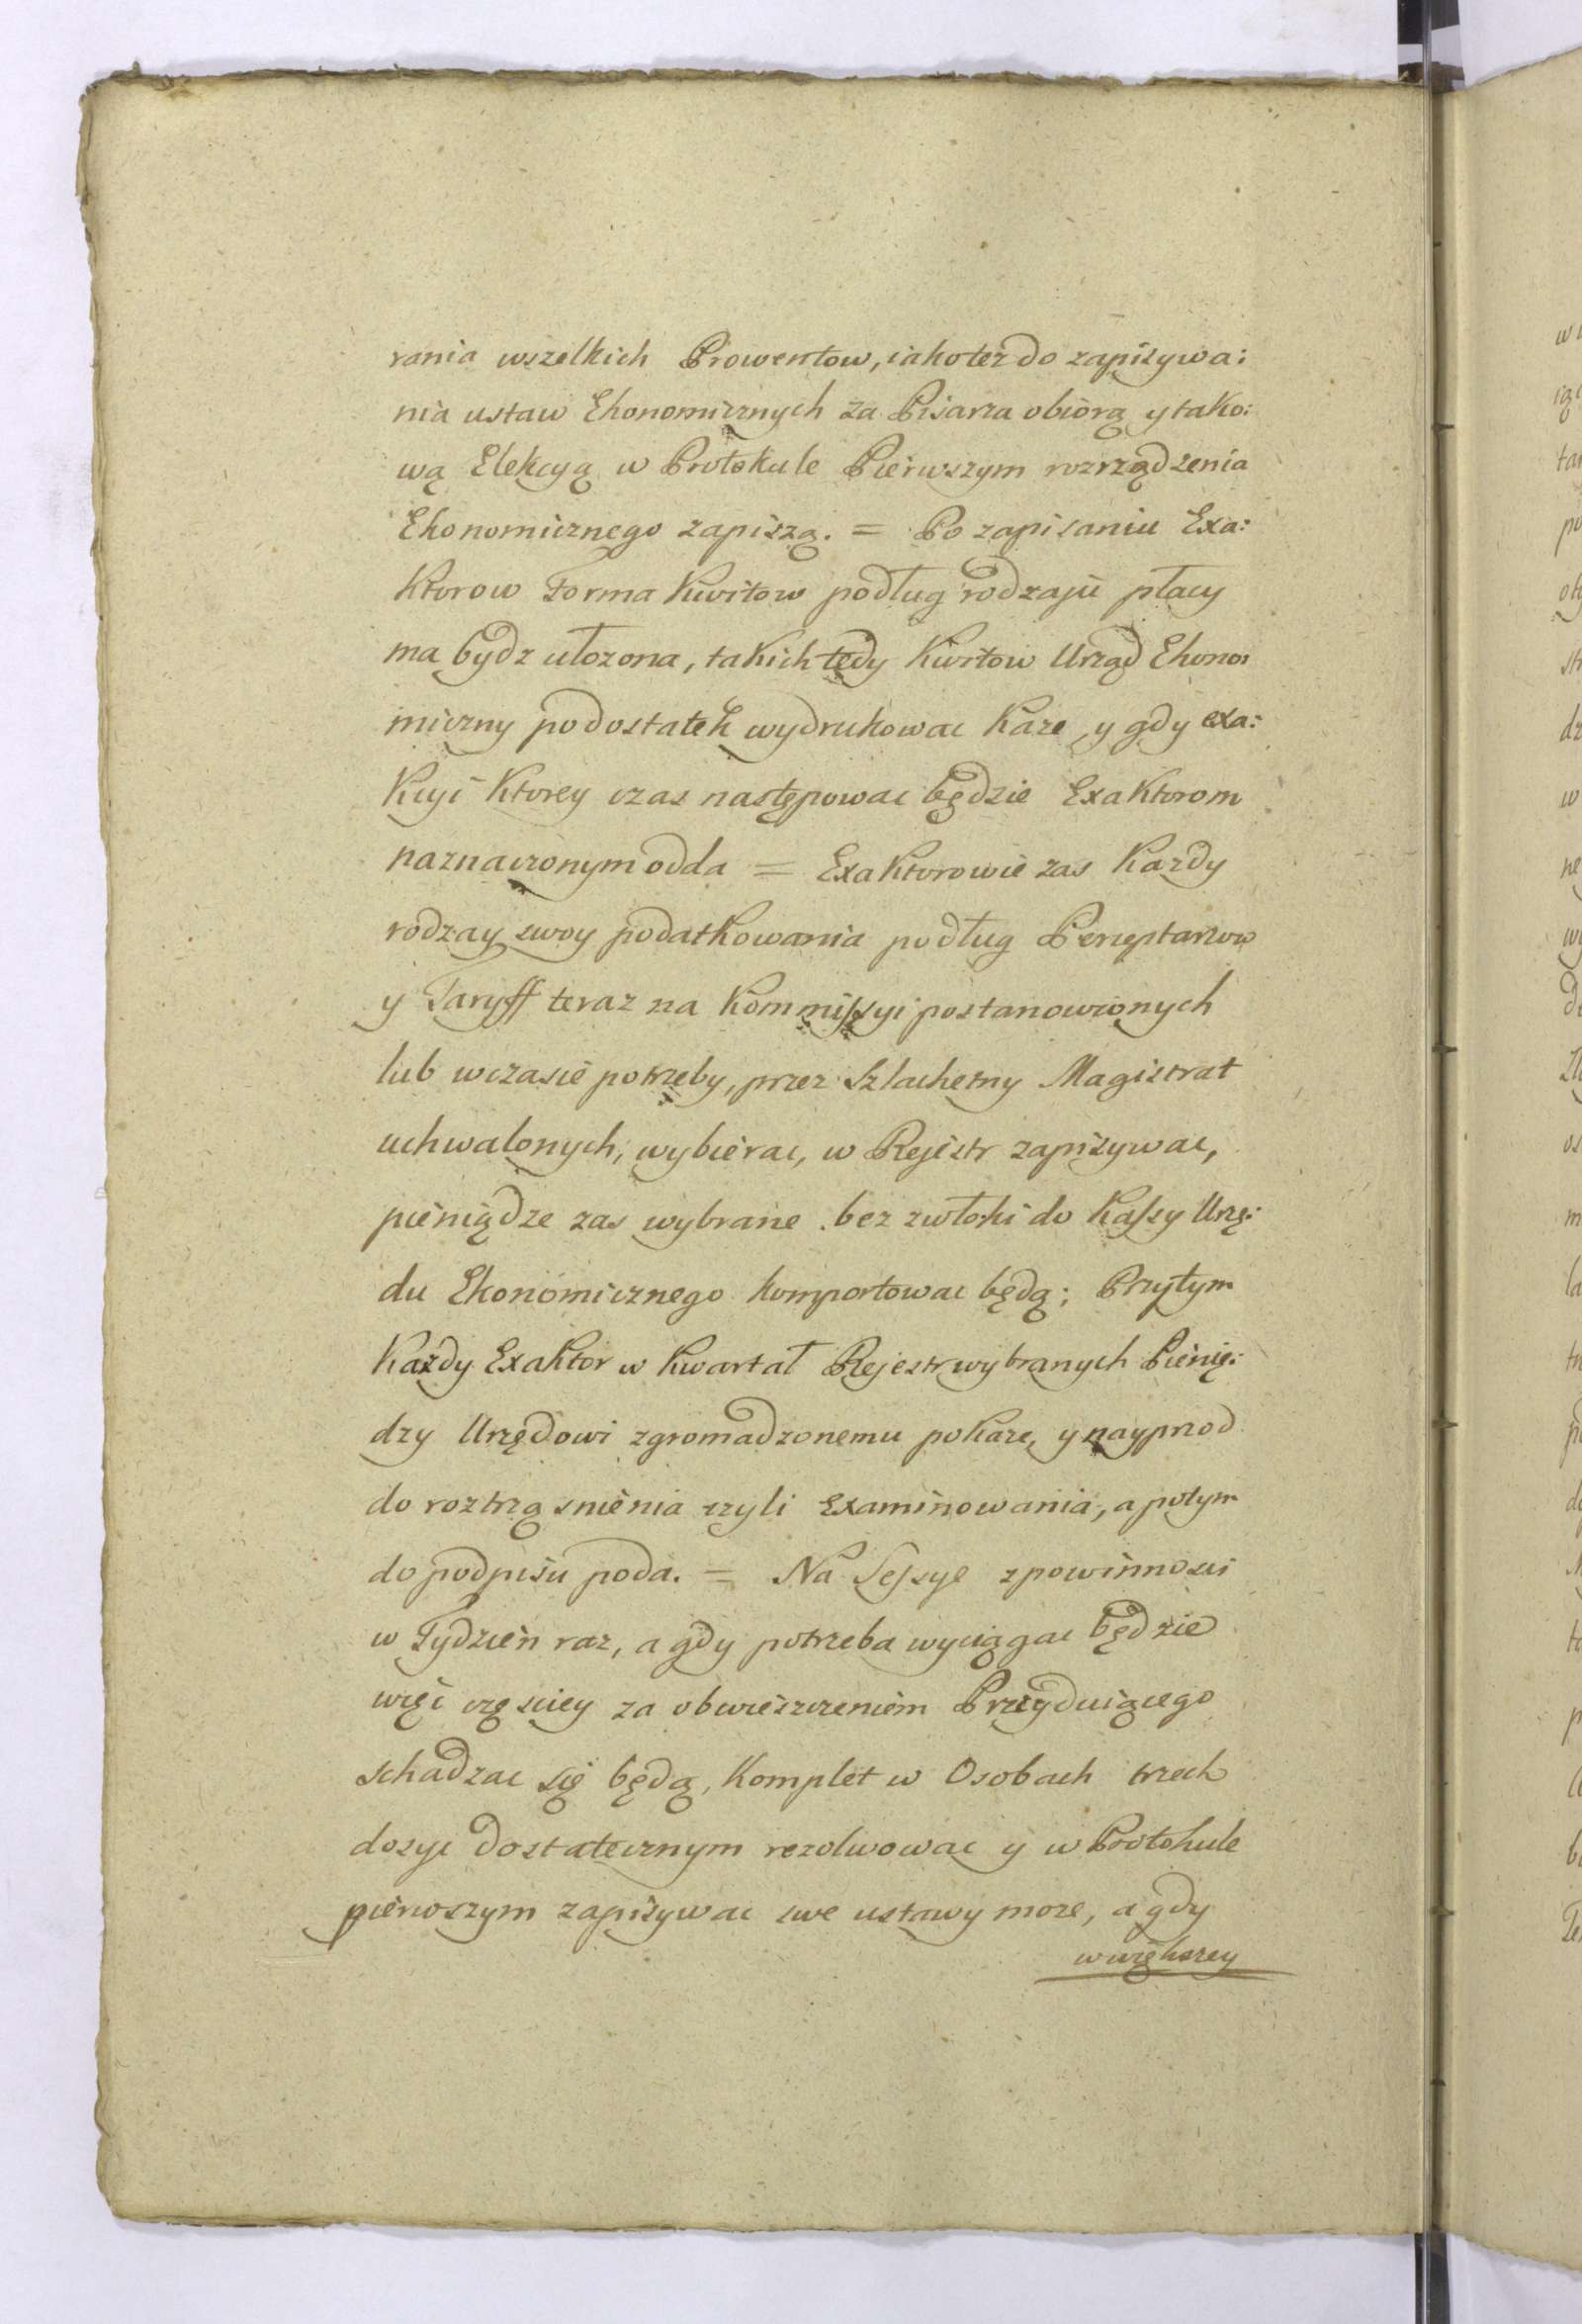 rania wszelkich Prowentow, iako też do zapisywa:
nia ustaw Ekonomicznych za Pisarza obiorą y tako:
wą Elekcyą w Protokule Pierwszym rozrządzenia
Ekonomicznego zapiszą. = Po zapisaniu Exa:
ktorow Forma Kwitow podług rodzaju płacy
ma bydz ułozona, takich tedy Kwitow Urząd Ekono:
miczny podostatek wydrukowac Każe, y gdy exa:
kcyi Ktorey czas następowac będzie Exaktorom
naznaczonym odda = Exaktorowie zas Kazdy
rodzay swoy podatkowania podług Perceptarzow
y Taryff teraz na Kommissyi postanowionych
lub wczasie potrzeby, przez Szlachetny Magistrat
uchwalonych, wybierac, w Rejestr zapisywac,
pieniądze zas wybrane bez zwłoki do Kassy Urzę:
du Ekonomicznego komportowac będą; Przytym
Każdy Exaktor w Kwartał Rejestr wybranych Pienię:
dzy Urzędowi zgromadzonemu pokaże, y nayprzod
do roztrząsnienia czyli Examinowania, a potym
do podpisu poda. = Na Sessye zpowinnosci
w Tydzień raz, a gdy potrzeba wyciągac będzie
więc częsciey za obwieszczeniem Prezyduiącego
schadzac się będą, Komplet w Osobach trzech
dosyc dostatecznym rezolwowac y w Protokule
pierwszym zapisywac swe ustawy może, a gdy
wwiększey